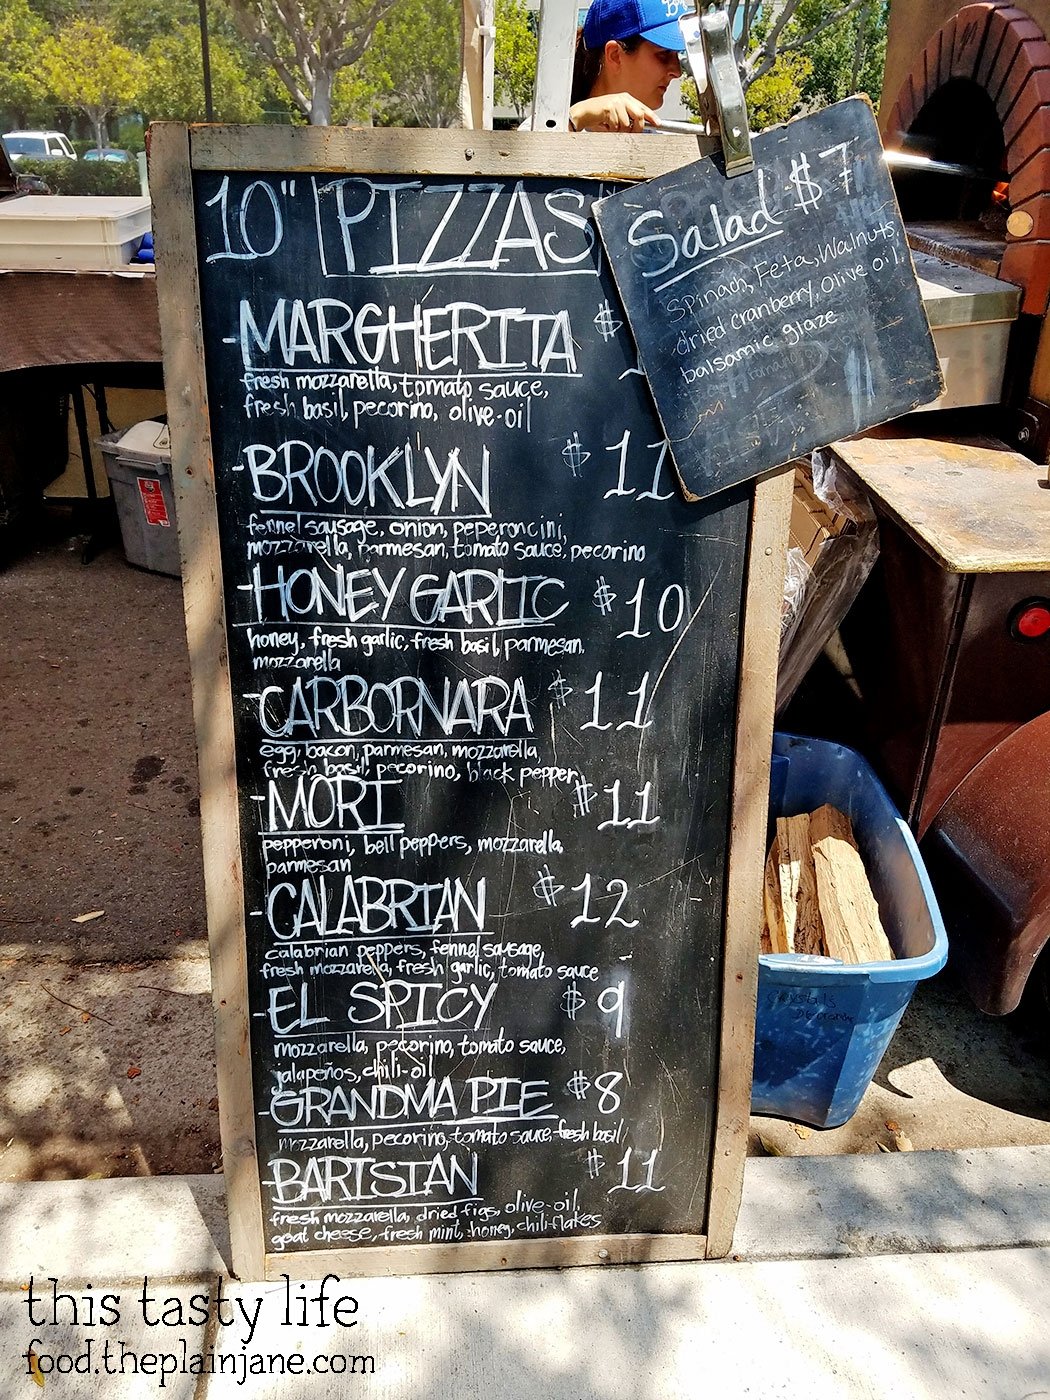 10" PIZZAS
-MARGHERITA $
fresh mozzarella, tomato sauce,
fresh basil, pecorino, olive-oil
-BROOKLYN $11
fennel sausage, onion, peperoncini,
mozzarella, parmesan, tomato sauce, pecorino
-HONEY GARLIC $10
honey, fresh garlic, fresh basil, parmesan,
mozzarella
-CARBORNARA $11
egg, bacon, parmesan, mozzarella,
fresh basil, pecorino, black pepper,
-MORI $11
pepperoni, bell peppers, mozzarella,
parmesan
-CALABRIAN $12
calabrian peppers, fennel sausage,
fresh mozzarella, fresh garlic, tomato sauce
-EL SPICY $9
mozzarella, pecorino, tomato sauce,
jalapeños, chili-oil
-GRANDMA PIE $8
mozzarella, pecorino, tomato sauce, fresh basil
-BARISIAN $11
fresh mozzarella, dried figs, olive-oil,
goat cheese, fresh mint, honey, chili-flakes
Salad $7
Spinach, Feta, Walnuts
dried cranberry, olive oil,
balsamic glaze
this tasty life
food.theplainjane.com